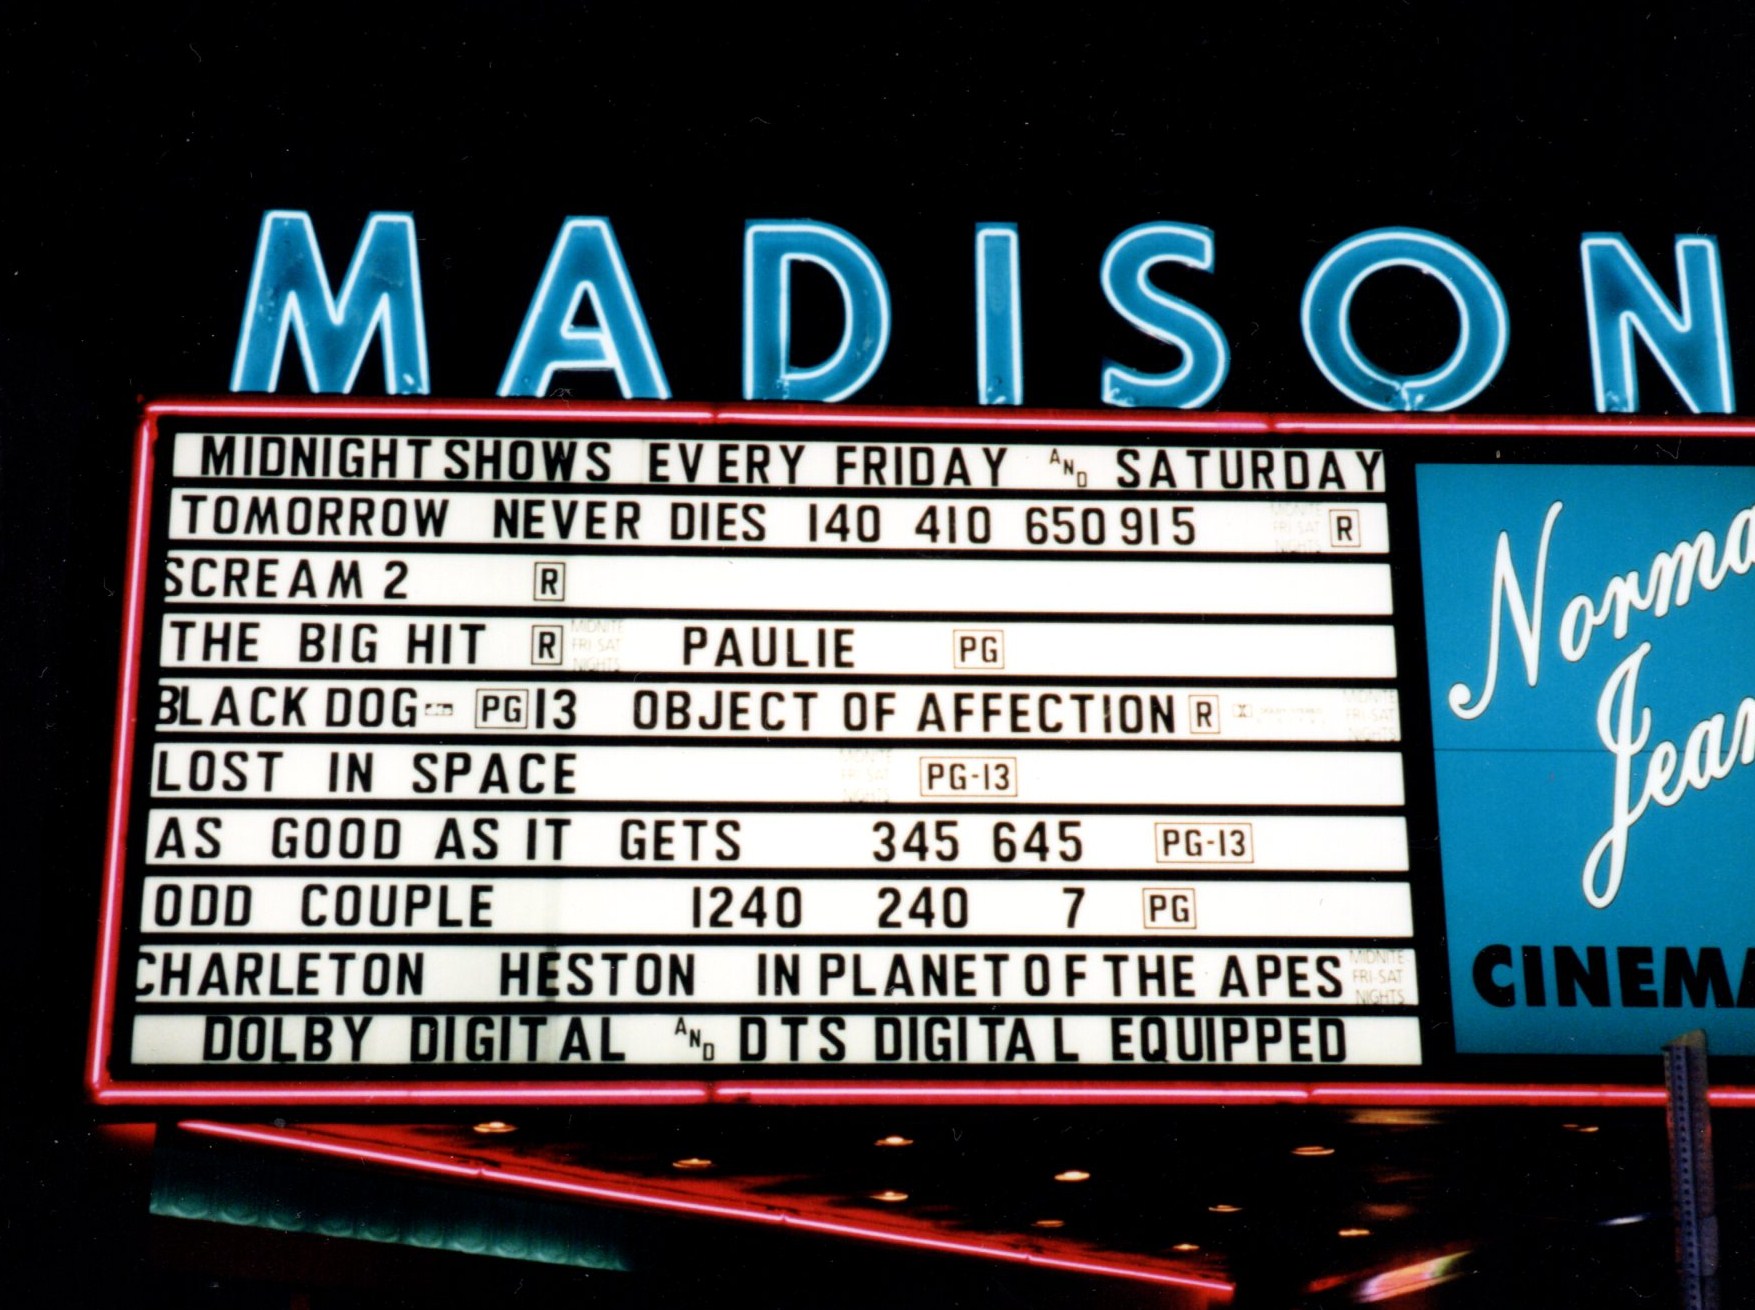 MADISON
MIDNIGHT SHOWS EVERY FRIDAY AND SATURDAY
TOMORROW NEVER DIES 140 410 650 915 MIDNITE FRI-SAT NIGHTS R
SCREAM 2 R
THE BIG HIT R MIDNITE FRI-SAT NIGHTS PAULIE PG
BLACK DOG PG 13 OBJECT OF AFFECTION R MIDNITE FRI-SAT NIGHTS
LOST IN SPACE MIDNITE FRI-SAT NIGHTS PG-13
AS GOOD AS IT GETS 345 645 PG-13
ODD COUPLE 1240 240 7 PG
CHARLETON HESTON IN PLANET OF THE APES MIDNITE FRI-SAT NIGHTS
DOLBY DIGITAL AND DTS DIGITAL EQUIPPED
Norma
Jean
CINEMA